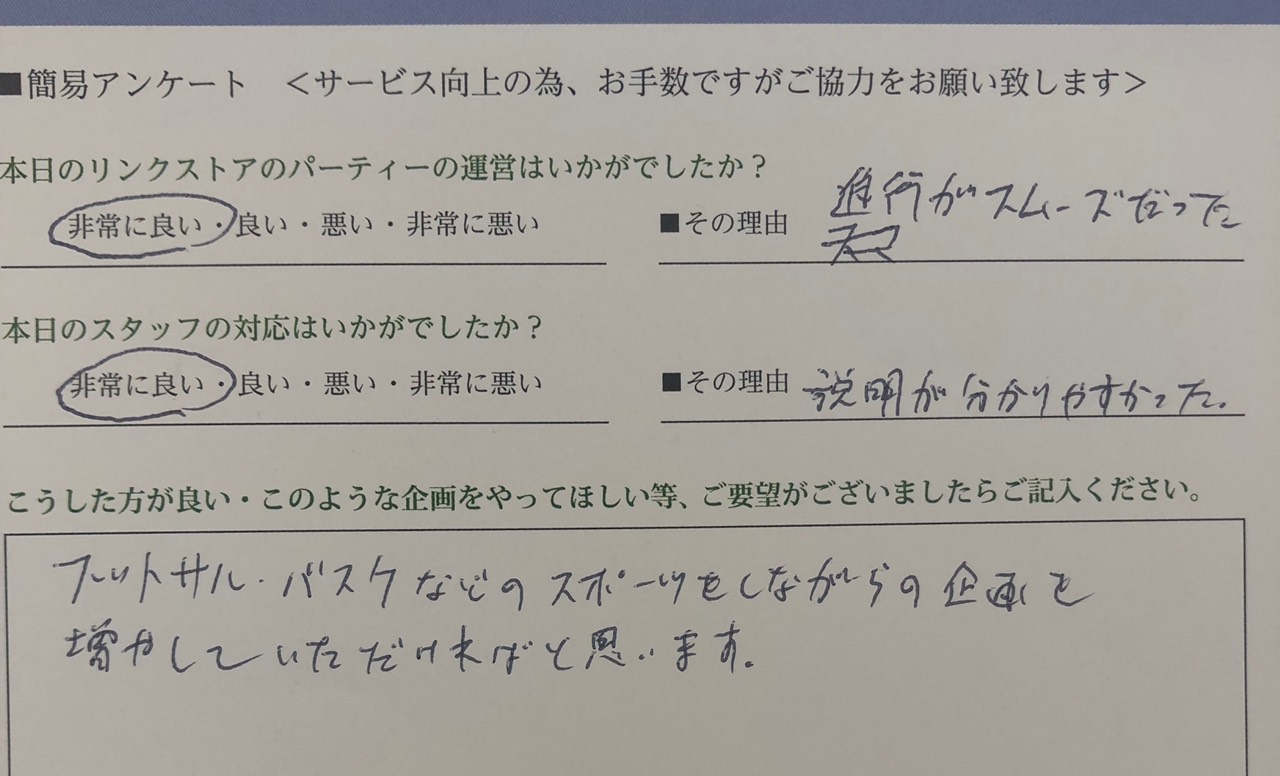 ■簡易アンケート <サービス向上の為、お手数ですがご協力をお願い致します>
本日のリンクストアのパーティーの運営はいかがでしたか？
非常に良い・良い・悪い・非常に悪い ■その理由 進行がスムーズだった
本日のスタッフの対応はいかがでしたか？
非常に良い・良い・悪い・非常に悪い ■その理由 説明が分かりやすかった。
こうした方が良い・このような企画をやってほしい等、ご要望がございましたらご記入ください。
フットサル・バスケなどのスポーツをしながらの企画を
増やしていただければと思います。